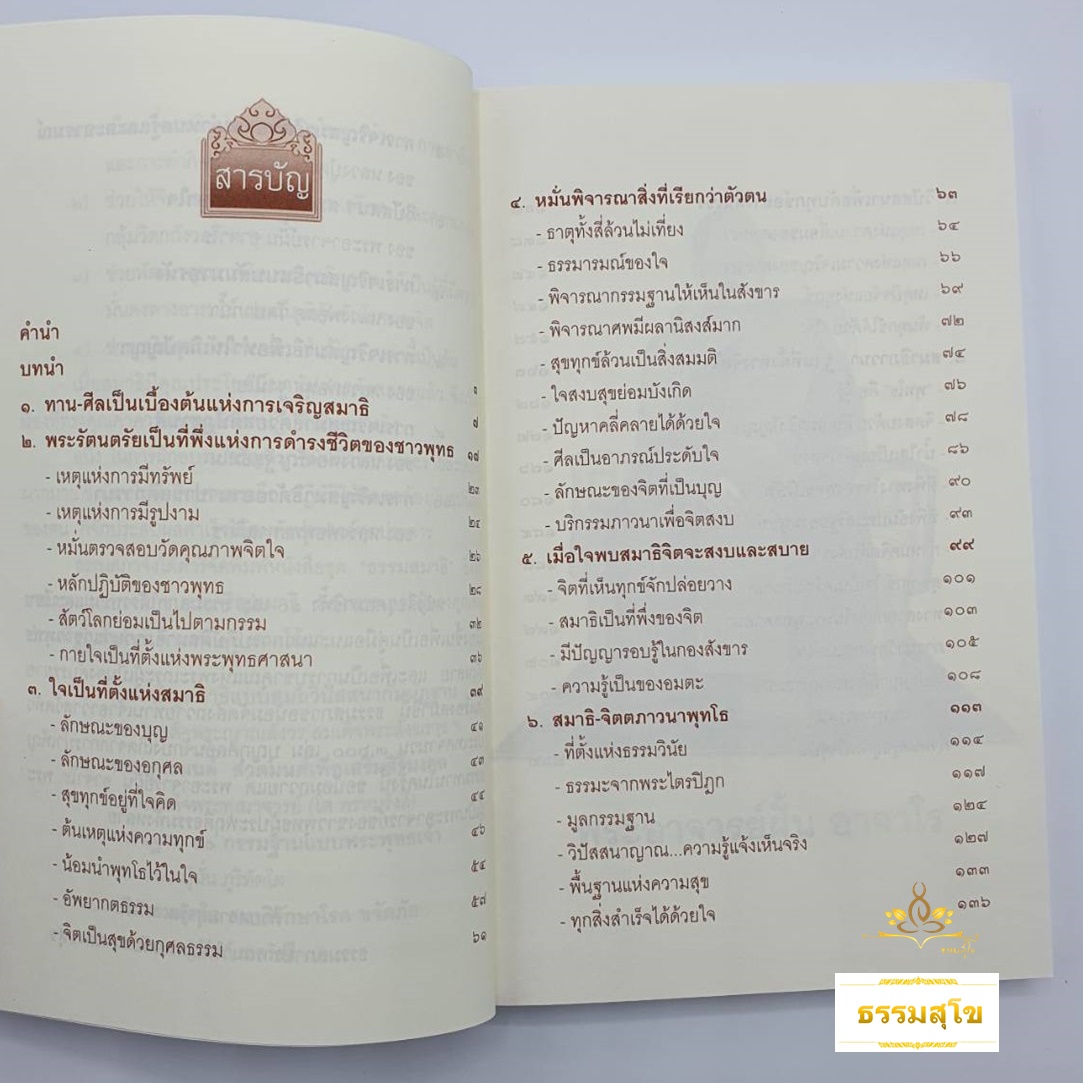 สารบัญ
คำนำ
บทนำ ๑
๑. ทาน-ศีลเป็นเบื้องต้นแห่งการเจริญสมาธิ ๗
๒. พระรัตนตรัยเป็นที่พึ่งแห่งการดำรงชีวิตของชาวพุทธ ๑๗
- เหตุแห่งการมีทรัพย์ ๒๓
- เหตุแห่งการมีรูปงาม ๒๔
- หมั่นตรวจสอบวัดคุณภาพจิตใจ ๒๖
- หลักปฏิบัติของชาวพุทธ ๒๘
- สัตว์โลกย่อมเป็นไปตามกรรม ๓๒
- กายใจเป็นที่ตั้งแห่งพระพุทธศาสนา ๓๖
๓. ใจเป็นที่ตั้งแห่งสมาธิ ๓๙
- ลักษณะของบุญ ๔๑
- ลักษณะของอกุศล ๔๓
- สุขทุกข์อยู่ที่ใจคิด ๔๔
- ต้นเหตุแห่งความทุกข์ ๔๖
- น้อมนำพุทโธไว้ในใจ ๕๔
- อัพยากตธรรม ๕๗
- จิตเป็นสุขด้วยกุศลธรรม ๖๑
๔. หมั่นพิจารณาสิ่งที่เรียกว่าตัวตน ๖๓
- ธาตุทั้งสี่ล้วนไม่เที่ยง ๖๔
- ธรรมารมณ์ของใจ ๖๖
- พิจารณากรรมฐานให้เห็นในสังขาร ๖๙
- พิจารณาศพมีผลานิสงส์มาก ๗๒
- สุขทุกข์ล้วนเป็นสิ่งสมมติ ๗๔
- ใจสงบสุขย่อมบังเกิด ๗๖
- ปัญหาคลี่คลายได้ด้วยใจ ๗๘
- ศีลเป็นอาภรณ์ประดับใจ ๘๖
- ลักษณะของจิตที่เป็นบุญ ๙๐
- บริกรรมภาวนาเพื่อจิตสงบ ๙๓
๕. เมื่อใจพบสมาธิจิตจะสงบและสบาย ๙๙
- จิตที่เห็นทุกข์จักปล่อยวาง ๑๐๑
- สมาธิเป็นที่พึ่งของจิต ๑๐๓
- มีปัญญารอบรู้ในกองสังขาร ๑๐๕
- ความรู้เป็นของอมตะ ๑๐๘
๖. สมาธิ-จิตตภาวนาพุทโธ ๑๑๓
- ที่ตั้งแห่งธรรมวินัย ๑๑๔
- ธรรมะจากพระไตรปิฎก ๑๑๗
- มูลกรรมฐาน ๑๒๔
- วิปัสสนาญาณ...ความรู้แจ้งเห็นจริง ๑๒๗
- พื้นฐานแห่งความสุข ๑๓๓
- ทุกสิ่งสำเร็จได้ด้วยใจ ๑๓๖
ธรรมสุโข